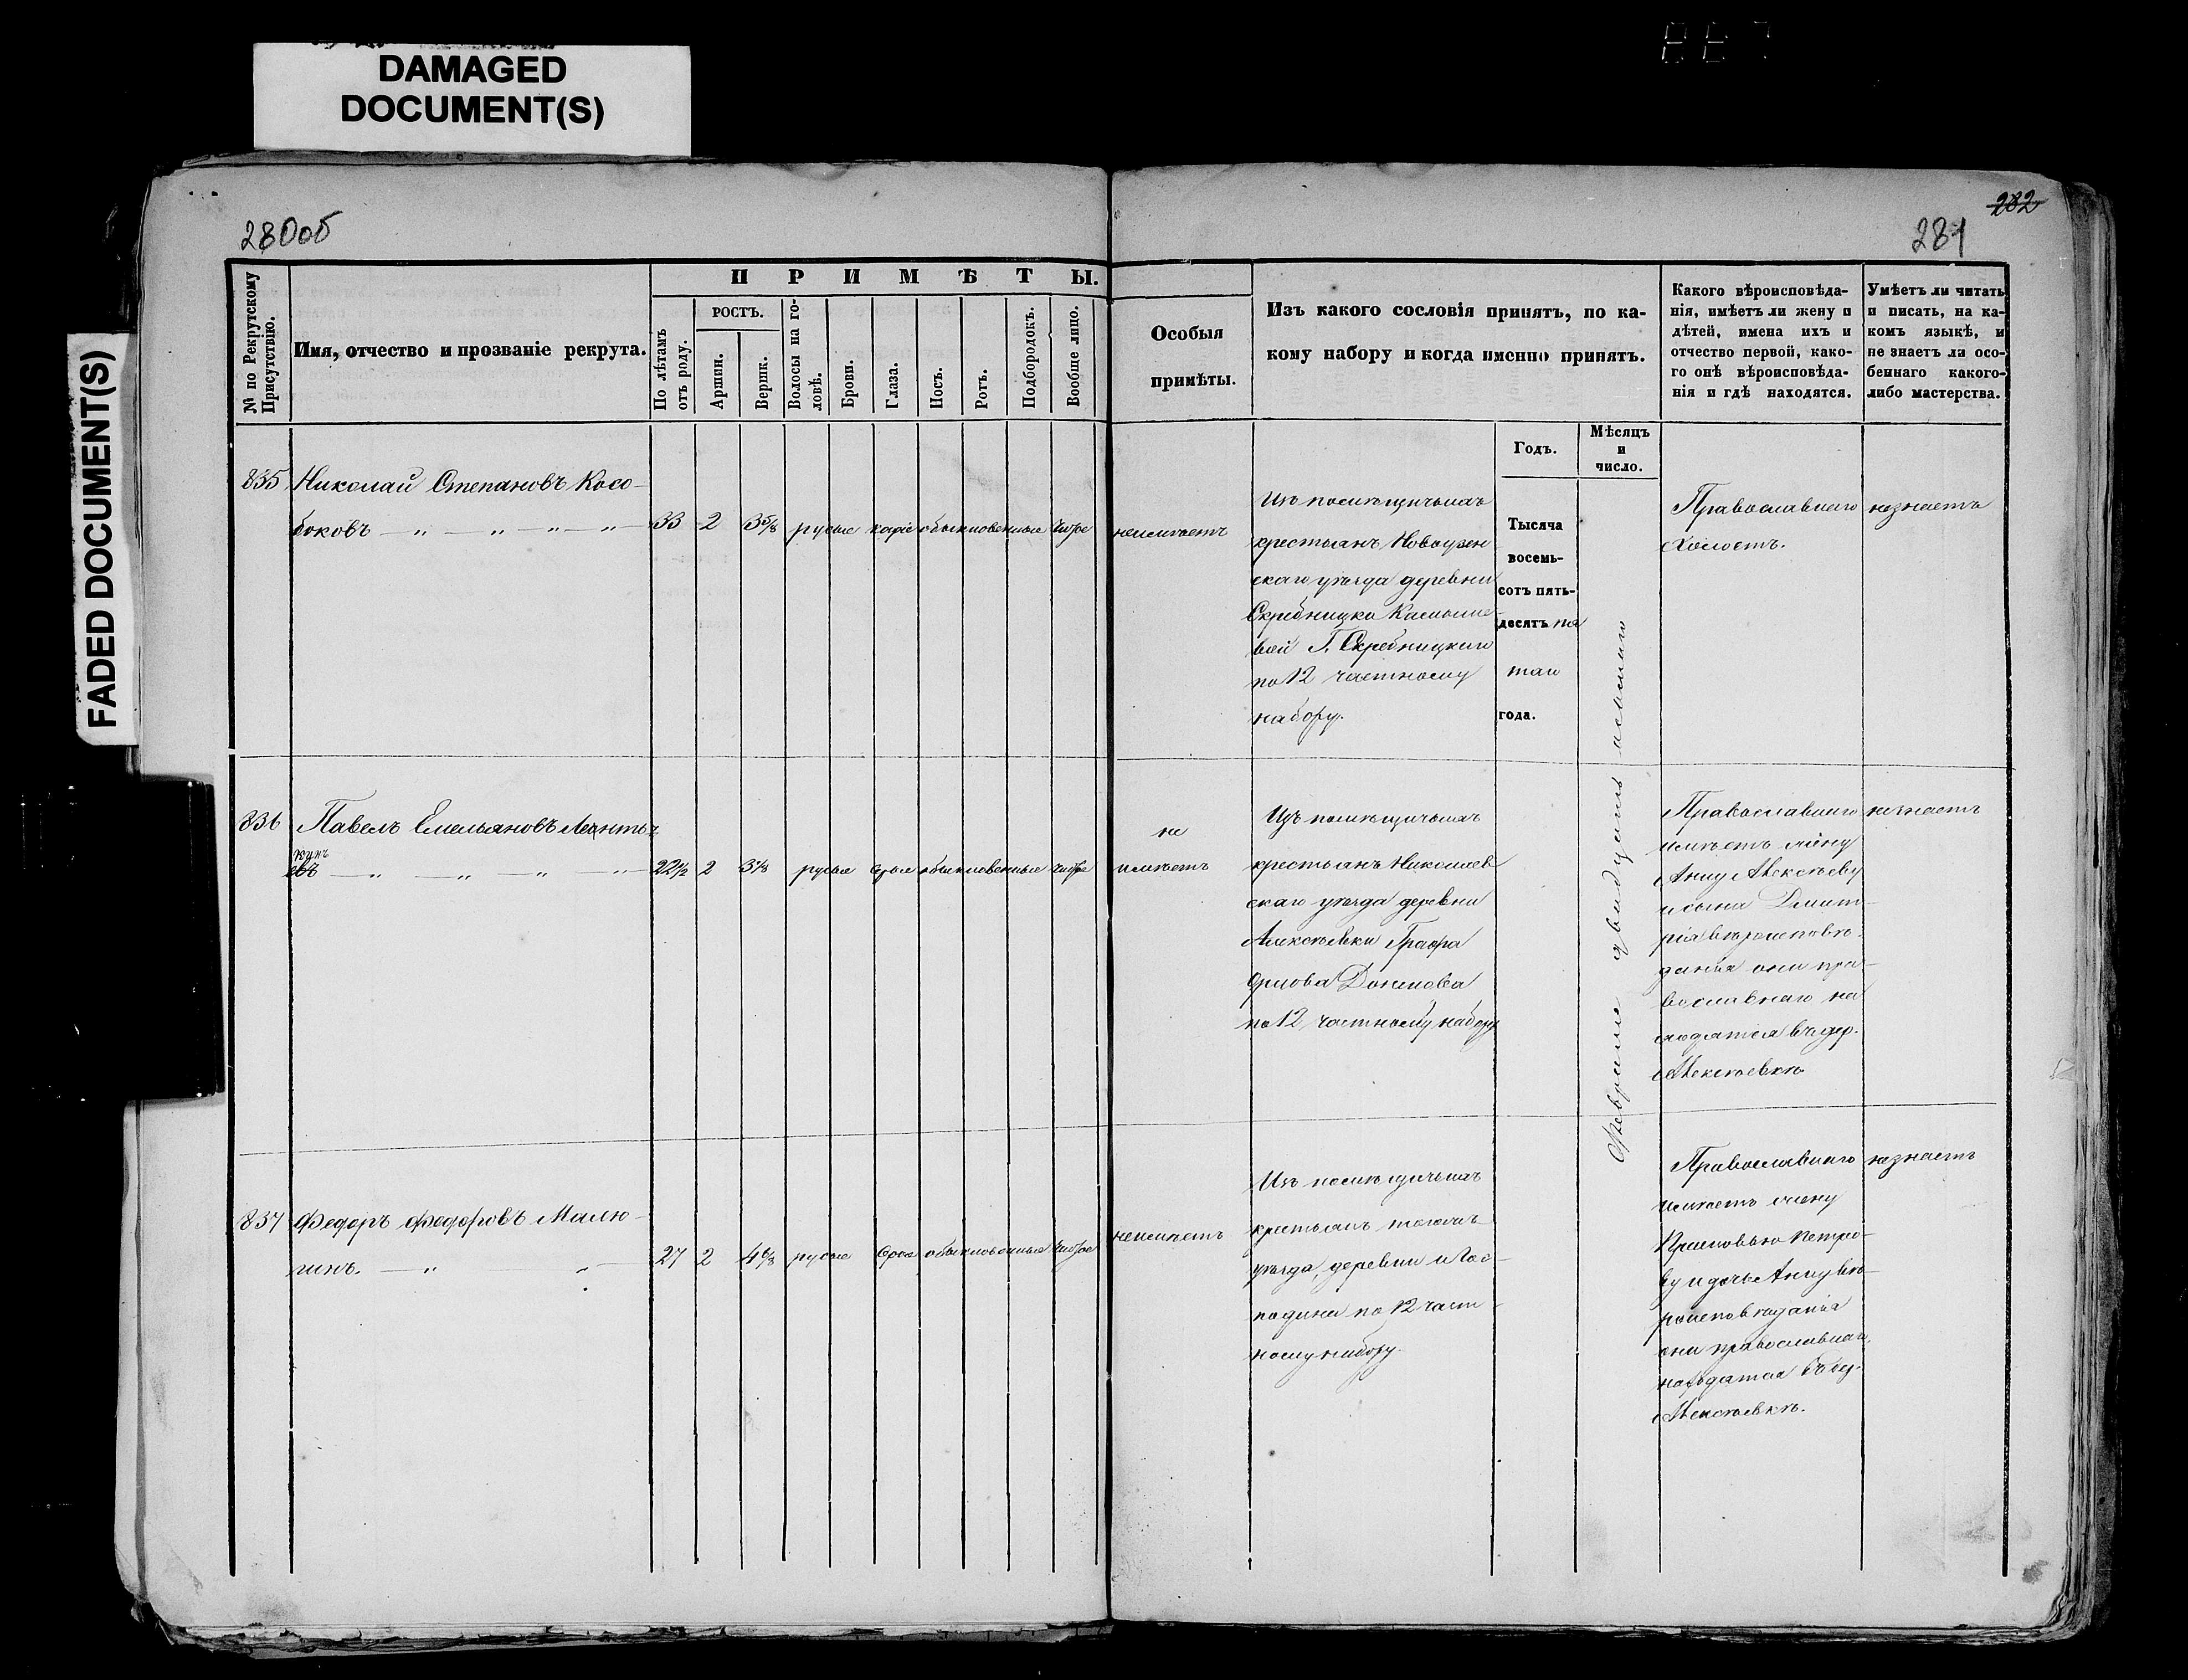 DAMAGED
DOCUMENT(S)
FADED DOCUMENT(S)
280об
282
281
№ по Рекрутскому
Присутствію.
Имя, отчество и прозваніе рекрута.
ПРИМѢТЫ.
По лѣтамъ
отъ роду.
РОСТЪ.
Аршин.
Вершк.
Волосы на го-
ловѣ.
Брови.
Глаза.
Носъ.
Ротъ.
Подбородокъ.
Вообще лицо.
Особыя
примѣты.
Изъ какого сословія принятъ, по ка-
кому набору и когда именно принятъ.
Годъ.
Мѣсяцъ
и
число.
Какого вѣроисповѣда-
нія, имѣетъ ли жену и
дѣтей, имена ихъ и
отчество первой, како-
го онѣ вѣроисповѣда-
нія и гдѣ находятся.
Умѣетъ ли читать
и писать, на ка-
комъ языкѣ, и
не знаетъ ли осо-
беннаго какого-
либо мастерства.
835 Николай Степановъ Косо-
боковъ — „ — „ — „ — „ — 33 2 3 5/8 русые каріе обыкновенные чистое
неимѣетъ
Изъ помѣщичьихъ
крестьянъ Новоузен
скаго уѣзда деревни
Скребницка Камыше-
вой Г. Скребницкаго
по 12 частному
набору.
Тысяча
восемь-
сотъ пять-
десятъ пя
таго
года.
Февраля двадцать осьмаго
Православнаго
Холостъ.
незнаетъ
836 Павелъ Емельяновъ Леонть
кинъ
евъ — „ — „ — „ — „ — 22 1/2 2 3 1/8 русые серые обыкновенные чистое
не
имѣетъ
Изъ помѣщичьихъ
крестьянъ Николаев
скаго уѣзда деревни
Алексѣевки Графа
Орлова Денисова
по 12 частному набору
Православнаго
имѣетъ жену
Анну Алексѣеву
и сына Дмит-
рія вѣроисповѣ-
данія они пра-
вославнаго на
ходятся въ дер.
Алексѣевкѣ
незнаетъ
837 Федоръ Федоровъ Малю-
гинъ. — „ — „ — 27 2 4 6/8 русые серые обыкновенные чистое
неимѣетъ
Изъ помѣщичьихъ
крестьянъ тогожъ
уѣзда, деревни и Гос-
подина по 12 част-
ному набору.
Православнаго
имѣетъ жену
Прасковью Петро-
ву и дочь Анну вѣ-
роисповѣданія
они православнаго,
находятся въ дер.
Алексѣевкѣ.
незнаетъ